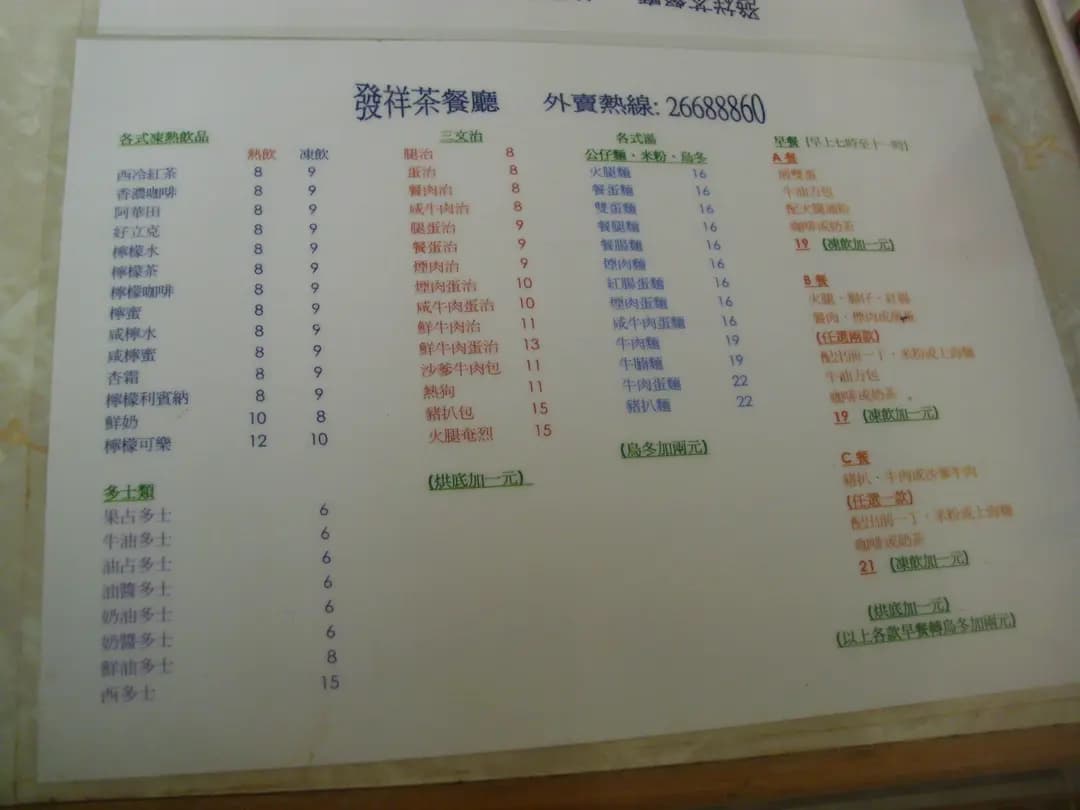 發祥茶餐廳 外賣熱線: 26688860
各式凍熱飲品
熱飲 凍飲
西冷紅茶 8 9
香濃咖啡 8 9
阿華田 8 9
好立克 8 9
檸檬水 8 9
檸檬茶 8 9
檸檬咖啡 8 9
檸蜜 8 9
咸檸水 8 9
咸檸蜜 8 9
杏霜 8 9
檸檬利賓納 8 9
鮮奶 10 8
檸檬可樂 12 10
多士類
果占多士 6
牛油多士 6
油占多士 6
油醬多士 6
奶油多士 6
奶醬多士 6
鮮油多士 8
西多士 15
三文治
腿治 8
蛋治 8
餐肉治 8
咸牛肉治 8
腿蛋治 9
餐蛋治 9
煙肉治 9
煙肉蛋治 10
咸牛肉蛋治 10
鮮牛肉治 11
鮮牛肉蛋治 13
沙爹牛肉包 11
熱狗 11
豬扒包 15
火腿奄烈 15
(烘底加一元)
各式湯
公仔麵·米粉·烏冬
火腿麵 16
餐蛋麵 16
雙蛋麵 16
餐腿麵 16
餐腸麵 16
煙肉麵 16
紅腸蛋麵 16
煙肉蛋麵 16
咸牛肉蛋麵 16
牛肉麵 19
牛腩麵 19
牛肉蛋麵 22
豬扒麵 22
(烏冬加兩元)
早餐 [早上七時至十一時]
A 餐
煎雙蛋
牛油方包
配火腿通粉
咖啡或奶茶
19 (凍飲加一元)
B 餐
火腿·腸仔·紅腸
餐肉·煙肉或煎蛋
(任選兩款)
配出前一丁·米粉或上海麵
牛油方包
咖啡或奶茶
19 (凍飲加一元)
C 餐
豬扒·牛肉或沙爹牛肉
(任選一款)
配出前一丁·米粉或上海麵
咖啡或奶茶
21 (凍飲加一元)
(烘底加一元)
(以上各款早餐轉烏冬加兩元)